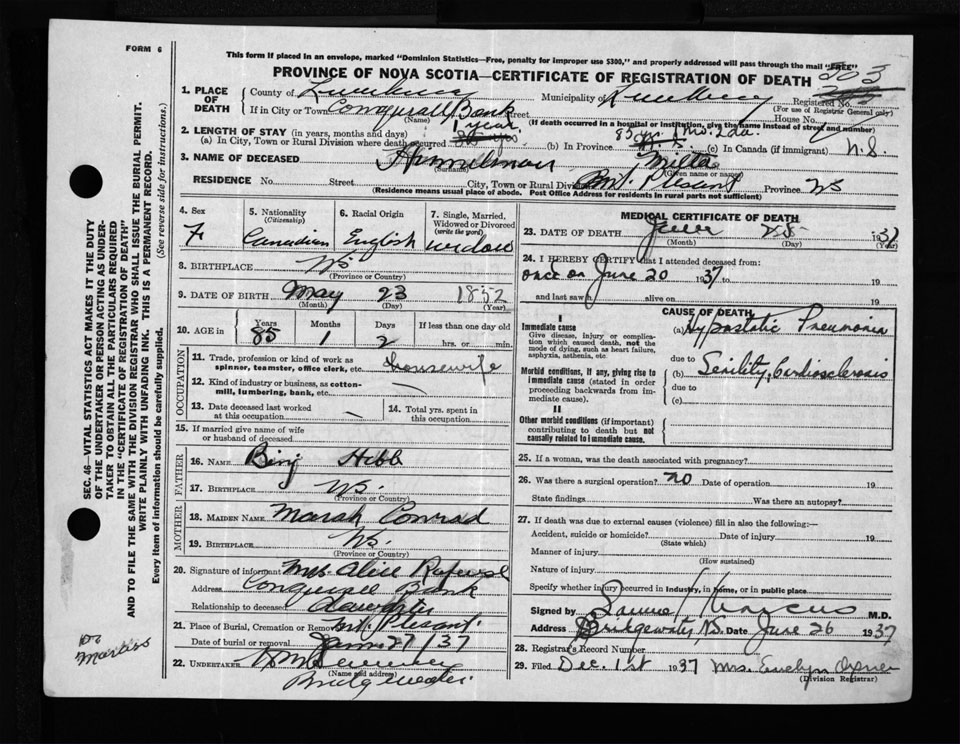 FORM 6
This form if placed in an envelope, marked "Dominion Statistics—Free, penalty for improper use $300," and properly addressed will pass through the mail "FREE"
PROVINCE OF NOVA SCOTIA—CERTIFICATE OF REGISTRATION OF DEATH
203
1. PLACE OF DEATH
County of Lunenburg Municipality of Lunenburg Registered No.
(For use of Registrar General only)
If in City or Town Conquerall Bank Street House No.
(Name) (If death occurred in a hospital or institution, give the name instead of street and number)
2. LENGTH OF STAY (in years, months and days)
(a) In City, Town or Rural Division where death occurred 1 year (b) In Province 85 yr. 1 mo. 2 da. (c) In Canada (if immigrant) N.S.
3. NAME OF DECEASED Himmelman Milta
(Surname) (Given name or names)
RESIDENCE No. Street City, Town or Rural Division Mt Plesant Province NS
(Residence means usual place of abode. Post Office Address for residents in rural parts not sufficient)
4. Sex F
5. Nationality (Citizenship) Canadian
6. Racial Origin English
7. Single, Married, Widowed or Divorced (write the word) widow
8. BIRTHPLACE NS.
(Province or Country)
9. DATE OF BIRTH May 23 1852
(Month) (Day) (Year)
10. AGE in Years Months Days If less than one day old
85 1 2 hrs. or min.
OCCUPATION
11. Trade, profession or kind of work as spinner, teamster, office clerk, etc. Housewife
12. Kind of industry or business, as cotton-mill, lumbering, bank, etc. —
13. Date deceased last worked at this occupation —
14. Total yrs. spent in this occupation
15. If married give name of wife or husband of deceased
FATHER
16. NAME Binj Hebb
17. BIRTHPLACE NS.
(Province or Country)
MOTHER
18. MAIDEN NAME Marah Conrad
19. BIRTHPLACE NS.
(Province or Country)
20. Signature of informant Mrs. Alice
Address Conquerall Bank
Relationship to deceased daughter
21. Place of Burial, Cremation or Removal Mt. Plesant.
Date of burial or removal June 27/37
22. UNDERTAKER
(Name and address)
Bridgewater
MEDICAL CERTIFICATE OF DEATH
23. DATE OF DEATH June 25 1937
(Month) (Day) (Year)
24. I HEREBY CERTIFY that I attended deceased from:
once on June 20 1937 to 19
and last saw h alive on 19
CAUSE OF DEATH
I
Immediate cause
Give disease, injury or complication which caused death, not the mode of dying, such as heart failure, asphyxia, asthenia, etc.
(a) Hypostatic Pneumonia
due to
Morbid conditions, if any, giving rise to immediate cause (stated in order proceeding backwards from immediate cause).
(b) Senility, Cardiosclerosis
due to
(c)
II
Other morbid conditions (if important) contributing to death but not causally related to immediate cause.
25. If a woman, was the death associated with pregnancy?
26. Was there a surgical operation? no Date of operation 19
State findings Was there an autopsy?
27. If death was due to external causes (violence) fill in also the following:—
Accident, suicide or homicide? Date of injury 19
(State which)
Manner of injury
(How sustained)
Nature of injury
Specify whether injury occurred in industry, in home, or in public place
Signed by Samuel Marcus M.D.
Address Bridgewater, N.S. Date June 26 1937
28. Registrar's Record Number
29. Filed Dec. 1st 1937 Mrs. Evelyn
(Division Registrar)
SEC. 46—VITAL STATISTICS ACT MAKES IT THE DUTY
OF THE UNDERTAKER OR PERSON ACTING AS UNDERTAKER
TO OBTAIN ALL THE PARTICULARS REQUIRED
IN THE "CERTIFICATE OF REGISTRATION OF DEATH"
AND TO FILE THE SAME WITH THE DIVISION REGISTRAR WHO SHALL ISSUE THE BURIAL PERMIT.
WRITE PLAINLY WITH UNFADING INK. THIS IS A PERMANENT RECORD.
Every item of information should be carefully supplied. (See reverse side for instructions.)